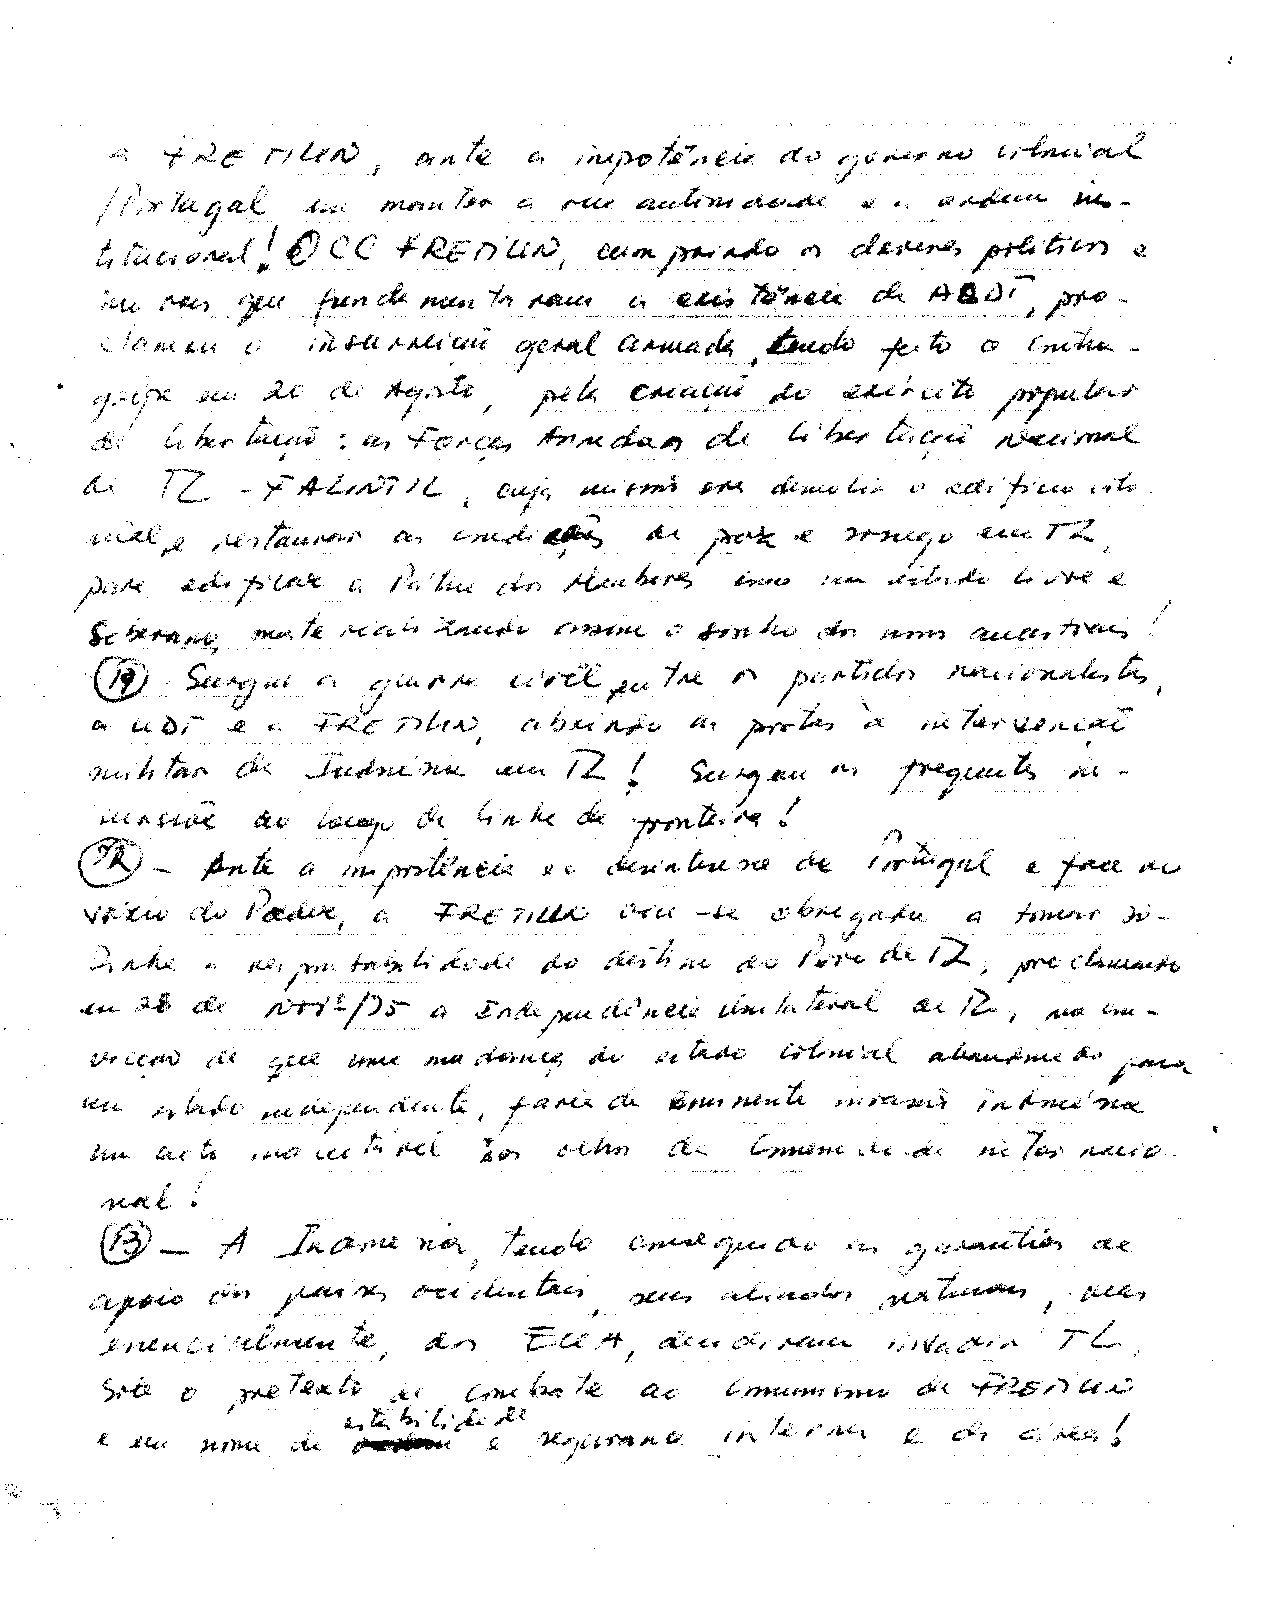 a FRETILIN, ante a impotência do governo colonial
/Portugal em manter a sua autoridade e a ordem ins-
titucional! O CC FRETILIN, cumprindo os deveres políticos e
que fundamentaram a existência da ASDT, pro-
clamou a insurreição geral armada, tendo feito o contra-
golpe em 20 de Agosto, pela criação do exército popular
de libertação: as Forças Armadas de Libertação Nacional
de TL - FALINTIL, cuja missão era demolir o edifício colo-
nial, e restaurar as condições de paz e sossego em TL,
para edificar a Pátria dos Mauberes como um estado livre e
Soberano, materializando assim o sonho dos nossos ancestrais!
Surgiu a guerra civil, entre os partidos nacionalistas,
a UDT e a FRETILIN, abrindo as portas à intervenção
militar da Indonésia em TL! Surgem as frequentes in-
cursões ao longo da linha da fronteira!
12 - Ante a impotência e o desinteresse de Portugal e face ao
vazio do Poder, a FRETILIN viu-se obrigada a tomar so-
zinha a responsabilidade do destino do Povo de TL, proclamando
em 28 de Novº/75 a Independência Unilateral de TL, na con-
vicção de que uma mudança do estado colonial abandonado para
um estado independente, faria da iminente invasão indonésia
um acto inaceitável aos olhos da Comunidade internacio-
nal!
13 - A Indonésia, tendo conseguido as garantias de
apoio dos países ocidentais, seus aliados naturais, mas
essencialmente, dos EUA, decidiram invadir TL,
sob o pretexto de combate ao comunismo da FRETILIN
e em nome da estabilidade e segurança interna e da área!